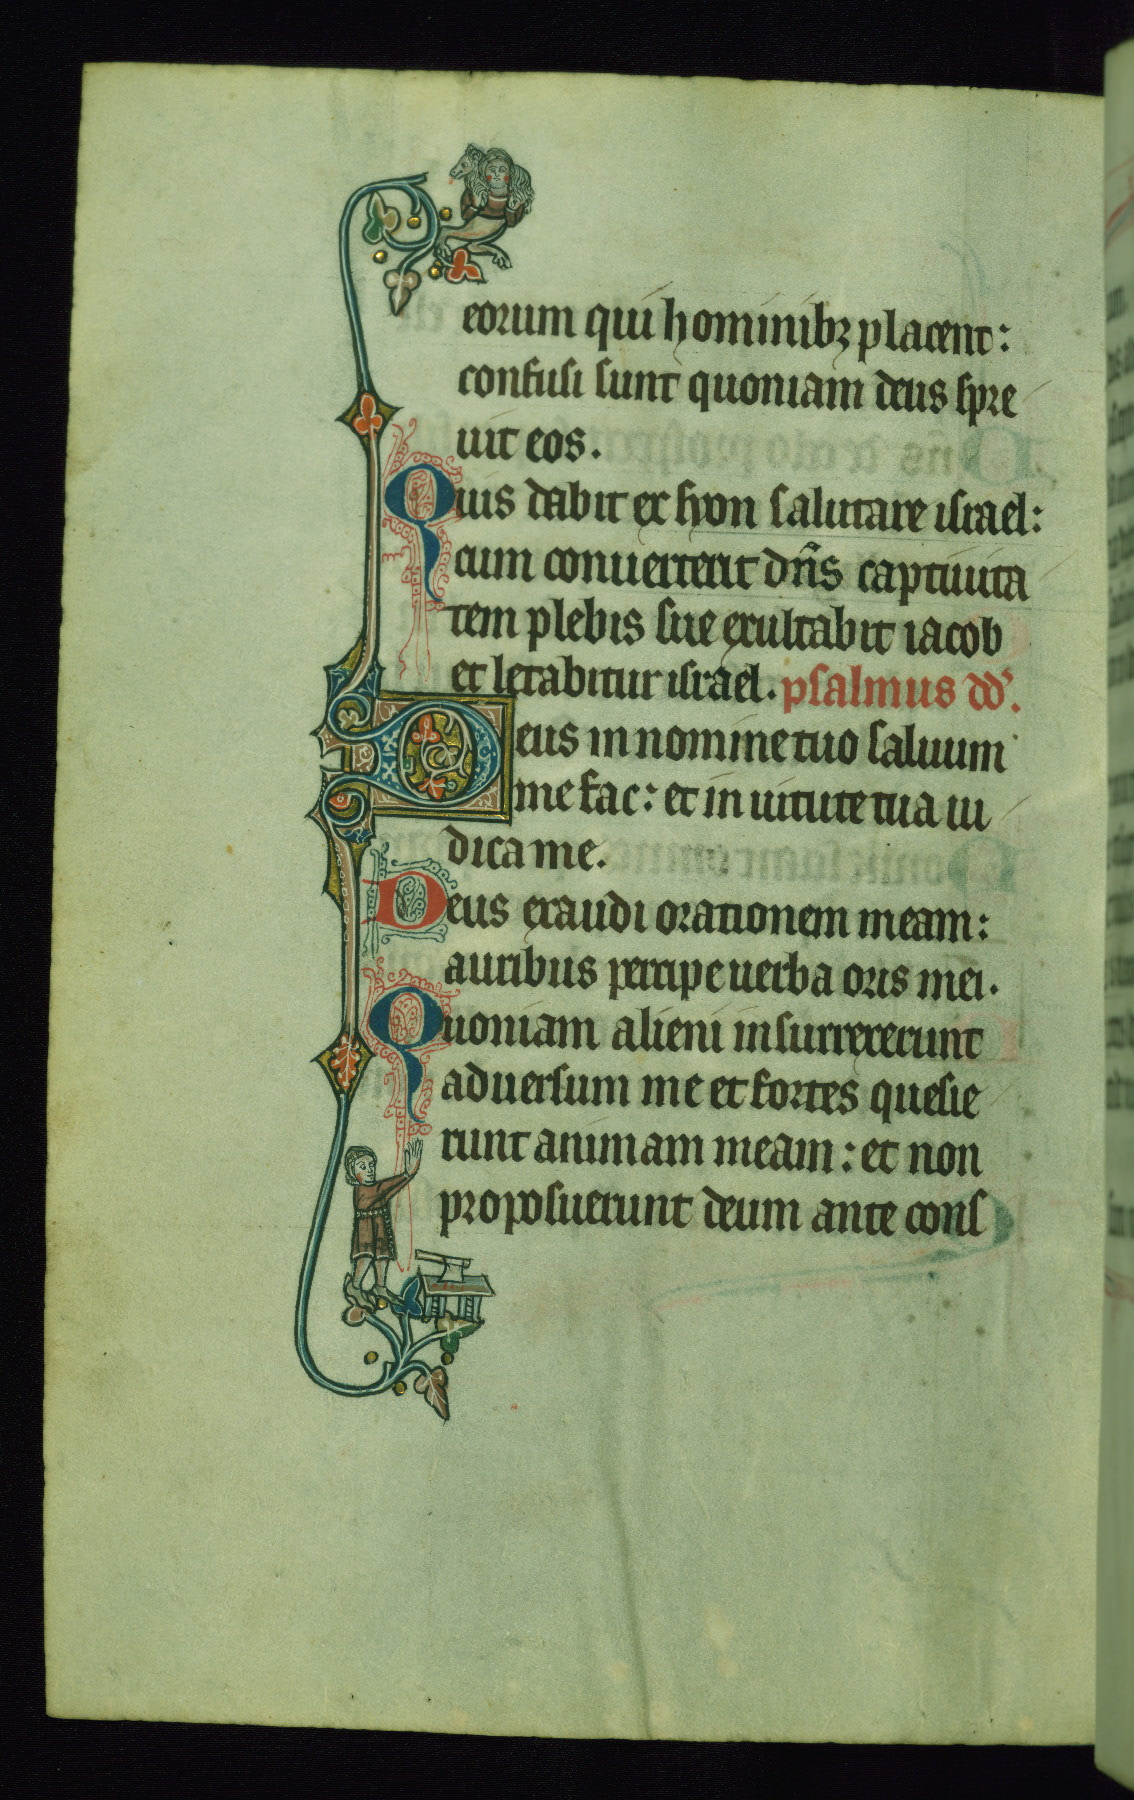 eorum qui hominibꝫ placent:
confusi sunt quoniam deus spre
uit eos.
Quis dabit ex syon salutare israel:
cum conuerterit dn̄s captiuita
tem plebis sue exultabit iacob
et letabitur israel. psalmus dd'.
Deus in nomine tuo saluum
me fac: et in uirtute tua iu
dica me.
Deus exaudi orationem meam:
auribus percipe uerba oris mei.
Quoniam alieni insurrexerunt
aduersum me et fortes quesie
runt animam meam: et non
proposuerunt deum ante cons